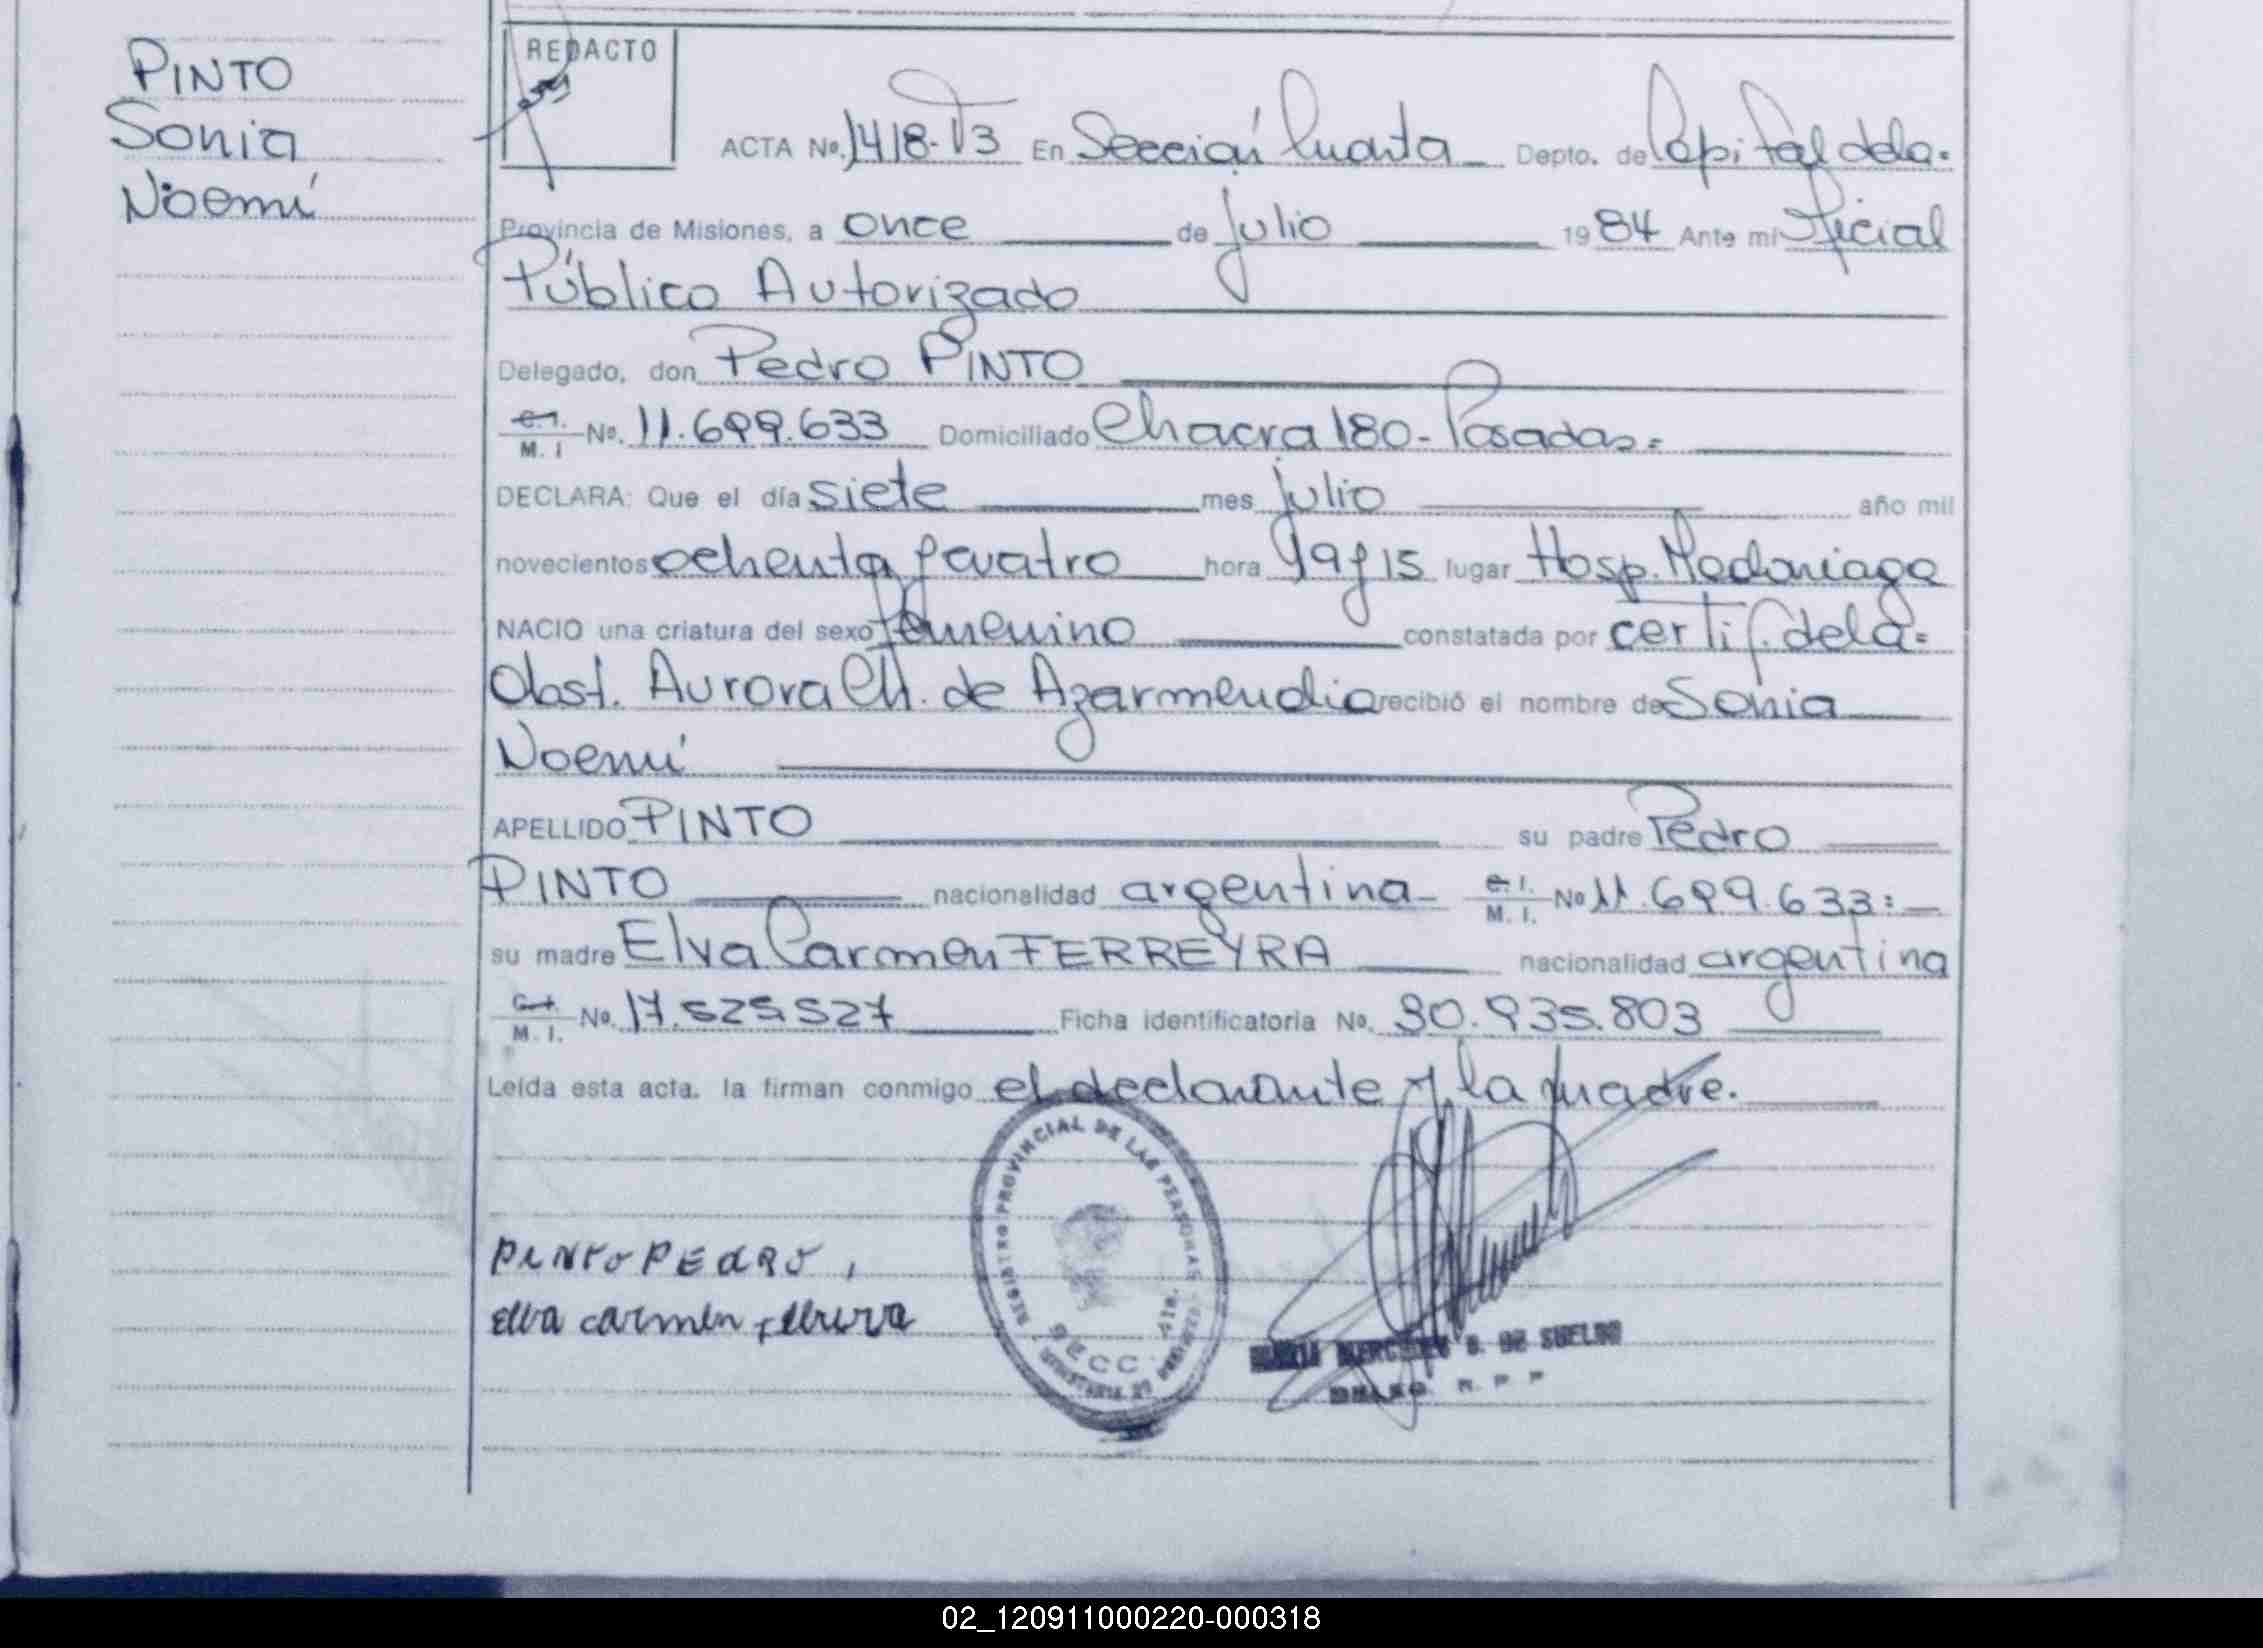 PINTO
Sonia
Noemí
REDACTO
ACTA No. 1418-T3 En Sección Cuarta Depto. de Capital de la.
Provincia de Misiones, a once de julio 1984 Ante mi Oficial
Público Autorizado
Delegado, don Pedro PINTO
C.I. M. I No. 11.699.633 Domiciliado Chacra 180-Posadas=
DECLARA: Que el día siete mes julio año mil
novecientos ochenta y cuatro hora 19 y 15 lugar Hosp. Madariaga
NACIO una criatura del sexo femenino constatada por certif. de la=
Obst. Aurora Ch. de Azarmendia recibió el nombre de Sonia
Noemí
APELLIDO PINTO su padre Pedro
PINTO nacionalidad argentina C.I. M. I. No 11.699.633:
su madre Elva Carmen FERREYRA nacionalidad argentina
C.I. M. I. No. 17.525.527 Ficha identificatoria No. 30.935.803
Leída esta acta, la firman conmigo el declarante y la madre.
REGISTRO PROVINCIAL DE LAS PERSONAS
SECC. 4ta.
PINTO PEdRO,
Elva Carmen Ferreira
MARIA MERCEDES B. DE SUELDO
R. P. P
02_120911000220-000318